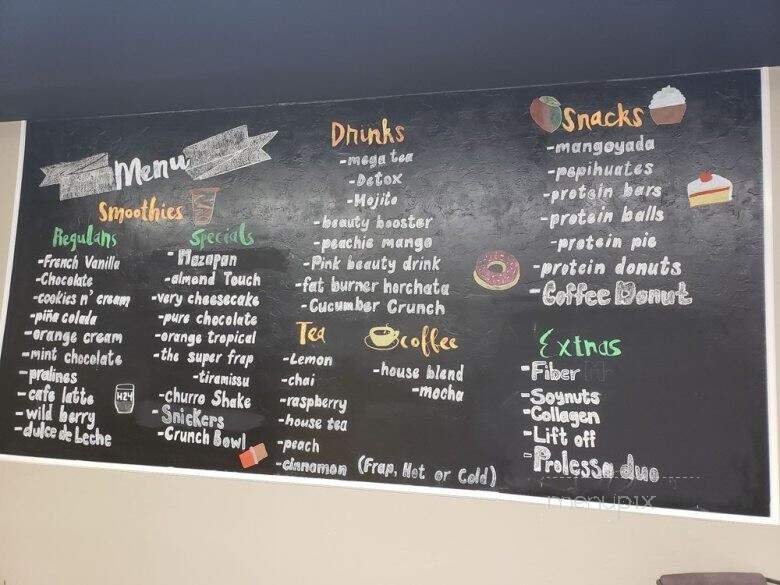 Menu
Smoothies
Regulars
-French Vanilla
-Chocolate
-cookies n' cream
-piña colada
-orange cream
-mint chocolate
-pralines
-cafe latte
-wild berry
-dulce de Leche
HZ4
Specials
-Mazapan
-almond Touch
-very cheesecake
-pure chocolate
-orange tropical
-the super frap
-tiramissu
-churro Shake
-Snickers
-Crunch Bowl
Drinks
-mega tea
-Detox
-Mojito
-beauty booster
-peachie mango
-Pink beauty drink
-fat burner horchata
-Cucumber Crunch
Tea
-Lemon
-chai
-raspberry
-house tea
-peach
-cinnamon (Frap, Hot or Cold)
coffee
-house blend
-mocha
Snacks
-mangoyada
-pepihuates
-protein bars
-protein balls
-protein pie
-protein donuts
-Coffee Donut
Extras
-Fiber
-Soynuts
-Collagen
-Lift off
-Prolessa duo
menupix